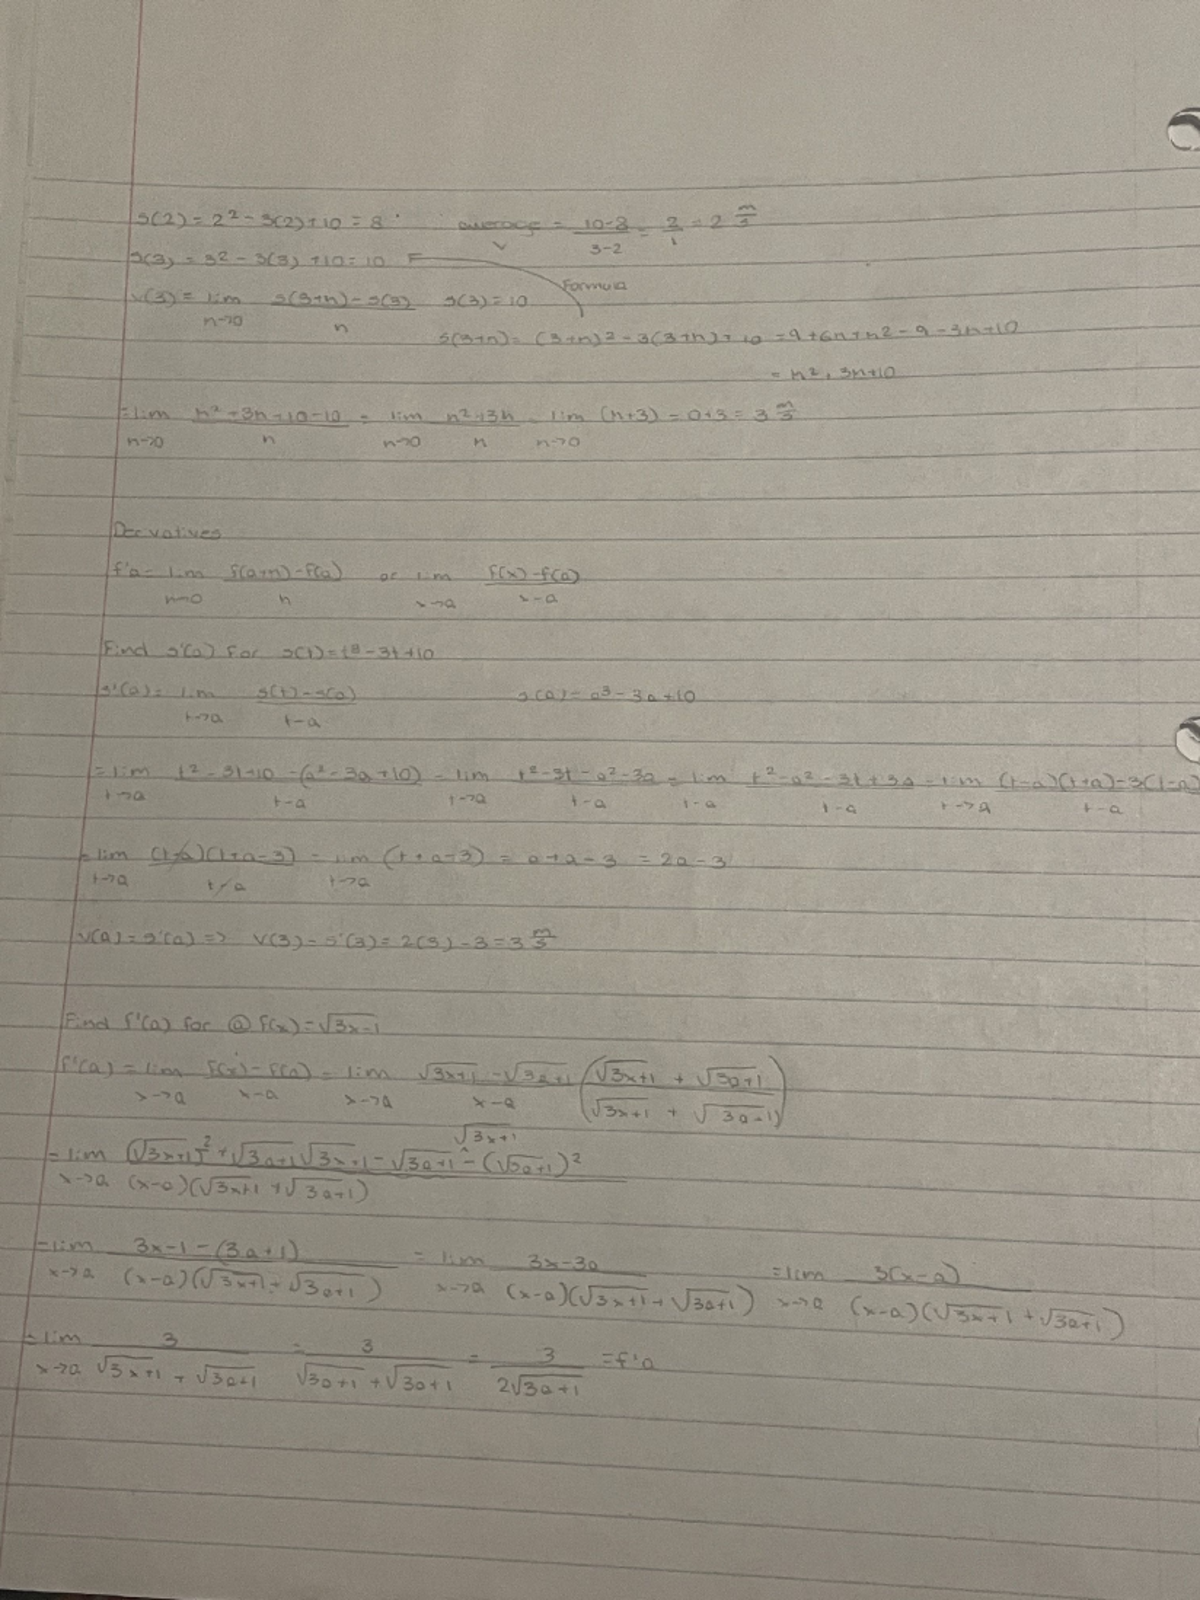 s(2) = 2² - 3(2) + 10 = 8 average v = (10-8)/(3-2) = 2/1 = 2 m/s
s(3) = 3² - 3(3) + 10 = 10 Formula
v(3) = lim n→0 (s(3+n) - s(3))/n s(3) = 10
s(3+n) = (3+n)² - 3(3+n) + 10 = 9 + 6n + n² - 9 - 3n + 10
= n² + 3n + 10
= lim n→0 (n² + 3n + 10 - 10)/n = lim n→0 (n² + 3n)/n = lim n→0 (n+3) = 0 + 3 = 3 m/s
Derivatives
f'a = lim n→0 (f(a+n) - f(a))/n or lim x→a (f(x) - f(a))/(x-a)
Find s'(a) for s(t) = t² - 3t + 10
s'(a) = lim t→a (s(t) - s(a))/(t-a) s(a) = a³ - 3a + 10
= lim t→a (t² - 3t + 10 - (a² - 3a + 10))/(t-a) = lim t→a (t² - 3t - a² - 3a)/(t-a) = lim t-a (t² - a² - 3t + 3a)/(t-a) = lim t→a ((t-a)(t+a) - 3(t-a))/(t-a)
= lim t→a ((t-a)(t+a-3))/(t-a) = lim t→a (t+a-3) = a+a-3 = 2a-3
v(a) = s'(a) => v(3) = s'(3) = 2(3) - 3 = 3 m/s
Find f'(a) for @ f(x) = √(3x-1)
f'(a) = lim x→a (f(x) - f(a))/(x-a) = lim x→a (√(3x+1) - √(3a+1))/(x-a) ((√(3x+1) + √(3a+1))/(√(3x+1) + √(3a+1)))
= lim x→a ((√(3x+1))² + √(3a+1)√(3x+1) - √(3a+1)√(3x+1) - (√(3a+1))²)/((x-a)(√(3x+1) + √(3a+1)))
= lim x→a (3x-1 - (3a+1))/((x-a)(√(3x+1) + √(3a+1))) = lim x→a (3x-3a)/((x-a)(√(3x+1) + √(3a+1))) = lim x→a 3(x-a)/((x-a)(√(3x+1) + √(3a+1)))
= lim x→a 3/(√(3x+1) + √(3a+1)) = 3/(√(3a+1) + √(3a+1)) = 3/(2√(3a+1)) = f'a